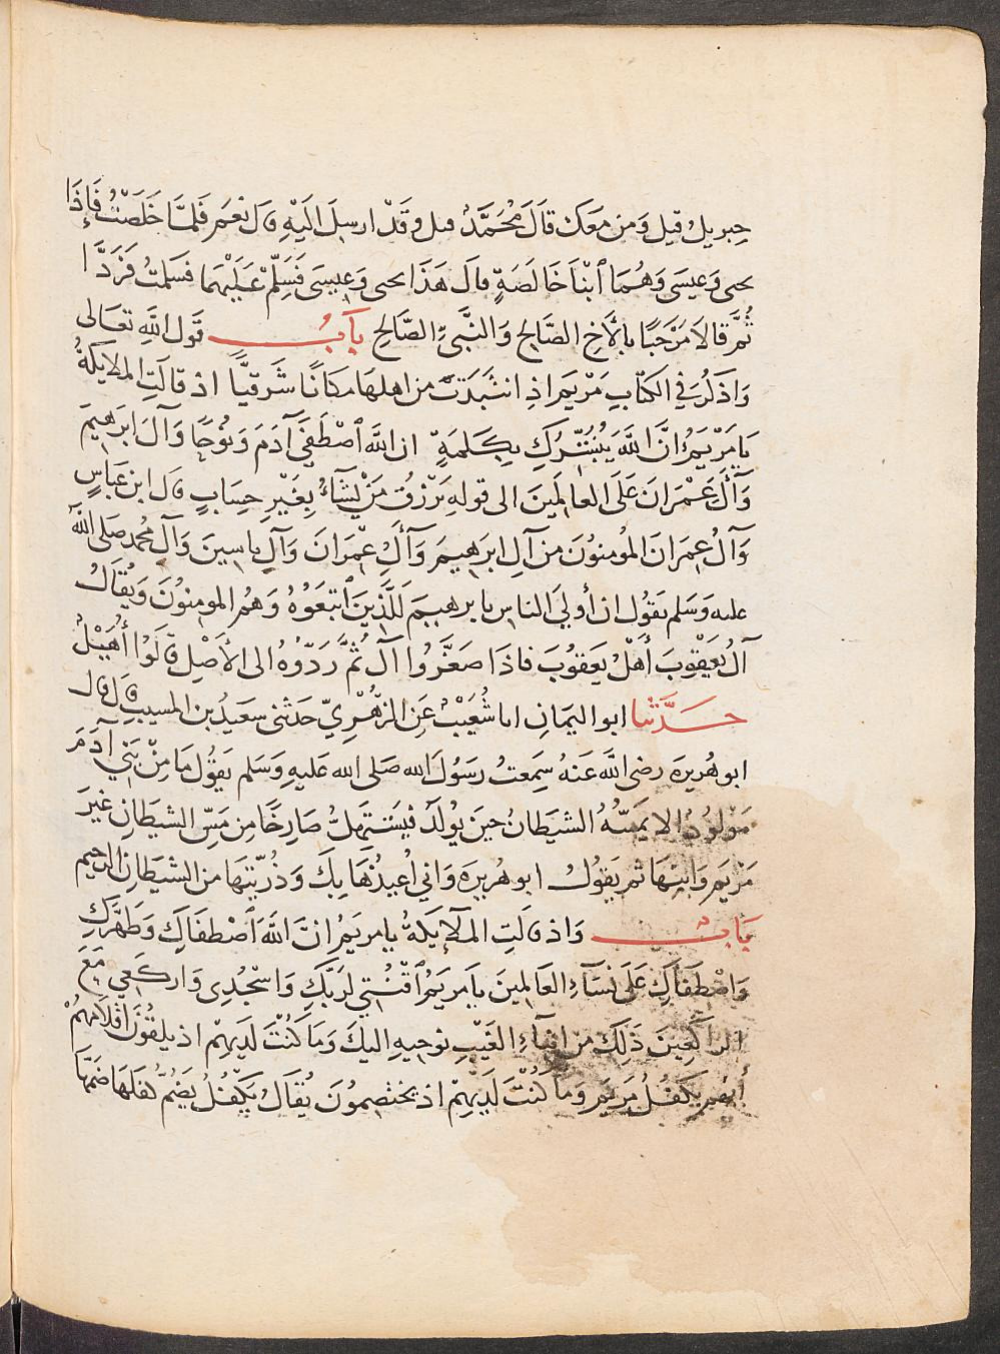 جبريل قيل وَمن مَعَكَ قَالَ مُحَمَّدٌ قيل وقَدْ ارسِلَ اليْهِ قال نعَم فَلمَّا خَلَصْتُ فَإذَا
يحيى وَعيسَى وَهُمَا ٱبْنَا خَالَةٍ قال هَذَا يحيى وَعِيسَى فَسَلِّمْ عَلَيْهما فسَلمتُ فَرَدَّا
ثُمَّ قالَا مَرْحَبًا بالأخِ الصَّالِحِ وَالنَّبىِّ الصَّالحِ بَابُ قَول اللَّهِ تعَالى
وَاذْكُرْ في الكِتَابِ مَرْيَم اذِ انتَبَذَتْ من اهلهَا مكانًا شَرقيًّا اذ قالَتِ الملايكَةُ
يَا مَرْيَمُ انَّ اللَّهَ يُبَشِّرُكِ بِكَلِمَةٍ ان اللَّه ٱصْطَفَىٰ آدَمَ وَنوُحًا وَآلَ ابرَهِيمَ
وَآلَ عِمْرَانَ عَلَى العالمَينَ الى قولهِ يَرْزُقُ مَنْ يشَآءُ بِغَيْرِ حِسَابٍ قال ابن عَبَّاسٍ
وَآلُ عِمرَانَ المُومنوُنَ من آلِ ابرَهِيمَ وَآلِ عِمْرَانَ وَآلِ ياسِينَ وَآلِ مُحمد صَلى اللَّهُ
عليه وَسَلم يَقوُل ان أوليَ الناسِ بابرهيمَ لَلَّذِينَ ٱتبَعَوُهُ وَهُم المومِنوُنَ وَيُقَالُ
آلُ يَعْقوُبَ أهْلُ يَعقوُبَ فاذَا صَغَّرُوا آل ثُمَّ رَدّوُهُ الى الأصْلِ قالوُا أُهَيْلٌ
حَدَّثنا ابو اليَمَانِ انا شُعَيْبٌ عَنِ الزُّهْرِيّ حَدثنى سَعيدُ بن المسيب قال قال
ابو هُريرَه رضى اللَّه عَنهُ سِمعتُ رَسوُلَ الله صَلى الله عَليهِ وَسَلم يَقوُل مَا مِنْ بَنِي آدَمَ
مَوْلوُدٌ الا يَمَسّهُ الشيطَانُ حينَ يوُلَدُ فيَسْتَهِلُّ صَارِخًا مِن مَسِّ الشيَطانِ غيرَ
مَرْيَم وَابنِهَا ثم يَقوُلُ ابو هُريرَه وَاني أُعيذُهَا بِكَ وَذُرِّيَّتهَا مِن الشيطَانِ الرجيم
بَابٌ وَاذ قالَتِ الملَآيكَةُ يا مرَيمُ انَّ اللَّهَ ٱصْطفَاكِ وَطهَّرَكِ
وَاصْطفَاكِ عَلَى نِسَآءِ العَالمينَ يَا مَريَمُ ٱقْنُتي لرَبّكِ وَاسْجُدِى وَاركَعِي مَعَ
الراكعينَ ذَلِكَ من انبآءِ الغَيْبِ نوحيهِ اليكَ وَمَا كُنْتَ لَديهِمْ اذ يلقُونَ اقلَامَهُمْ
أيهُم يَكْفُلُ مَريَم وَمَا كُنْتَ لَدَيْهِمْ اذ يختصِمُونَ يُقَالُ يَكْفُلُ يَضُمُّ كفلَهَا ضَمَّهَا